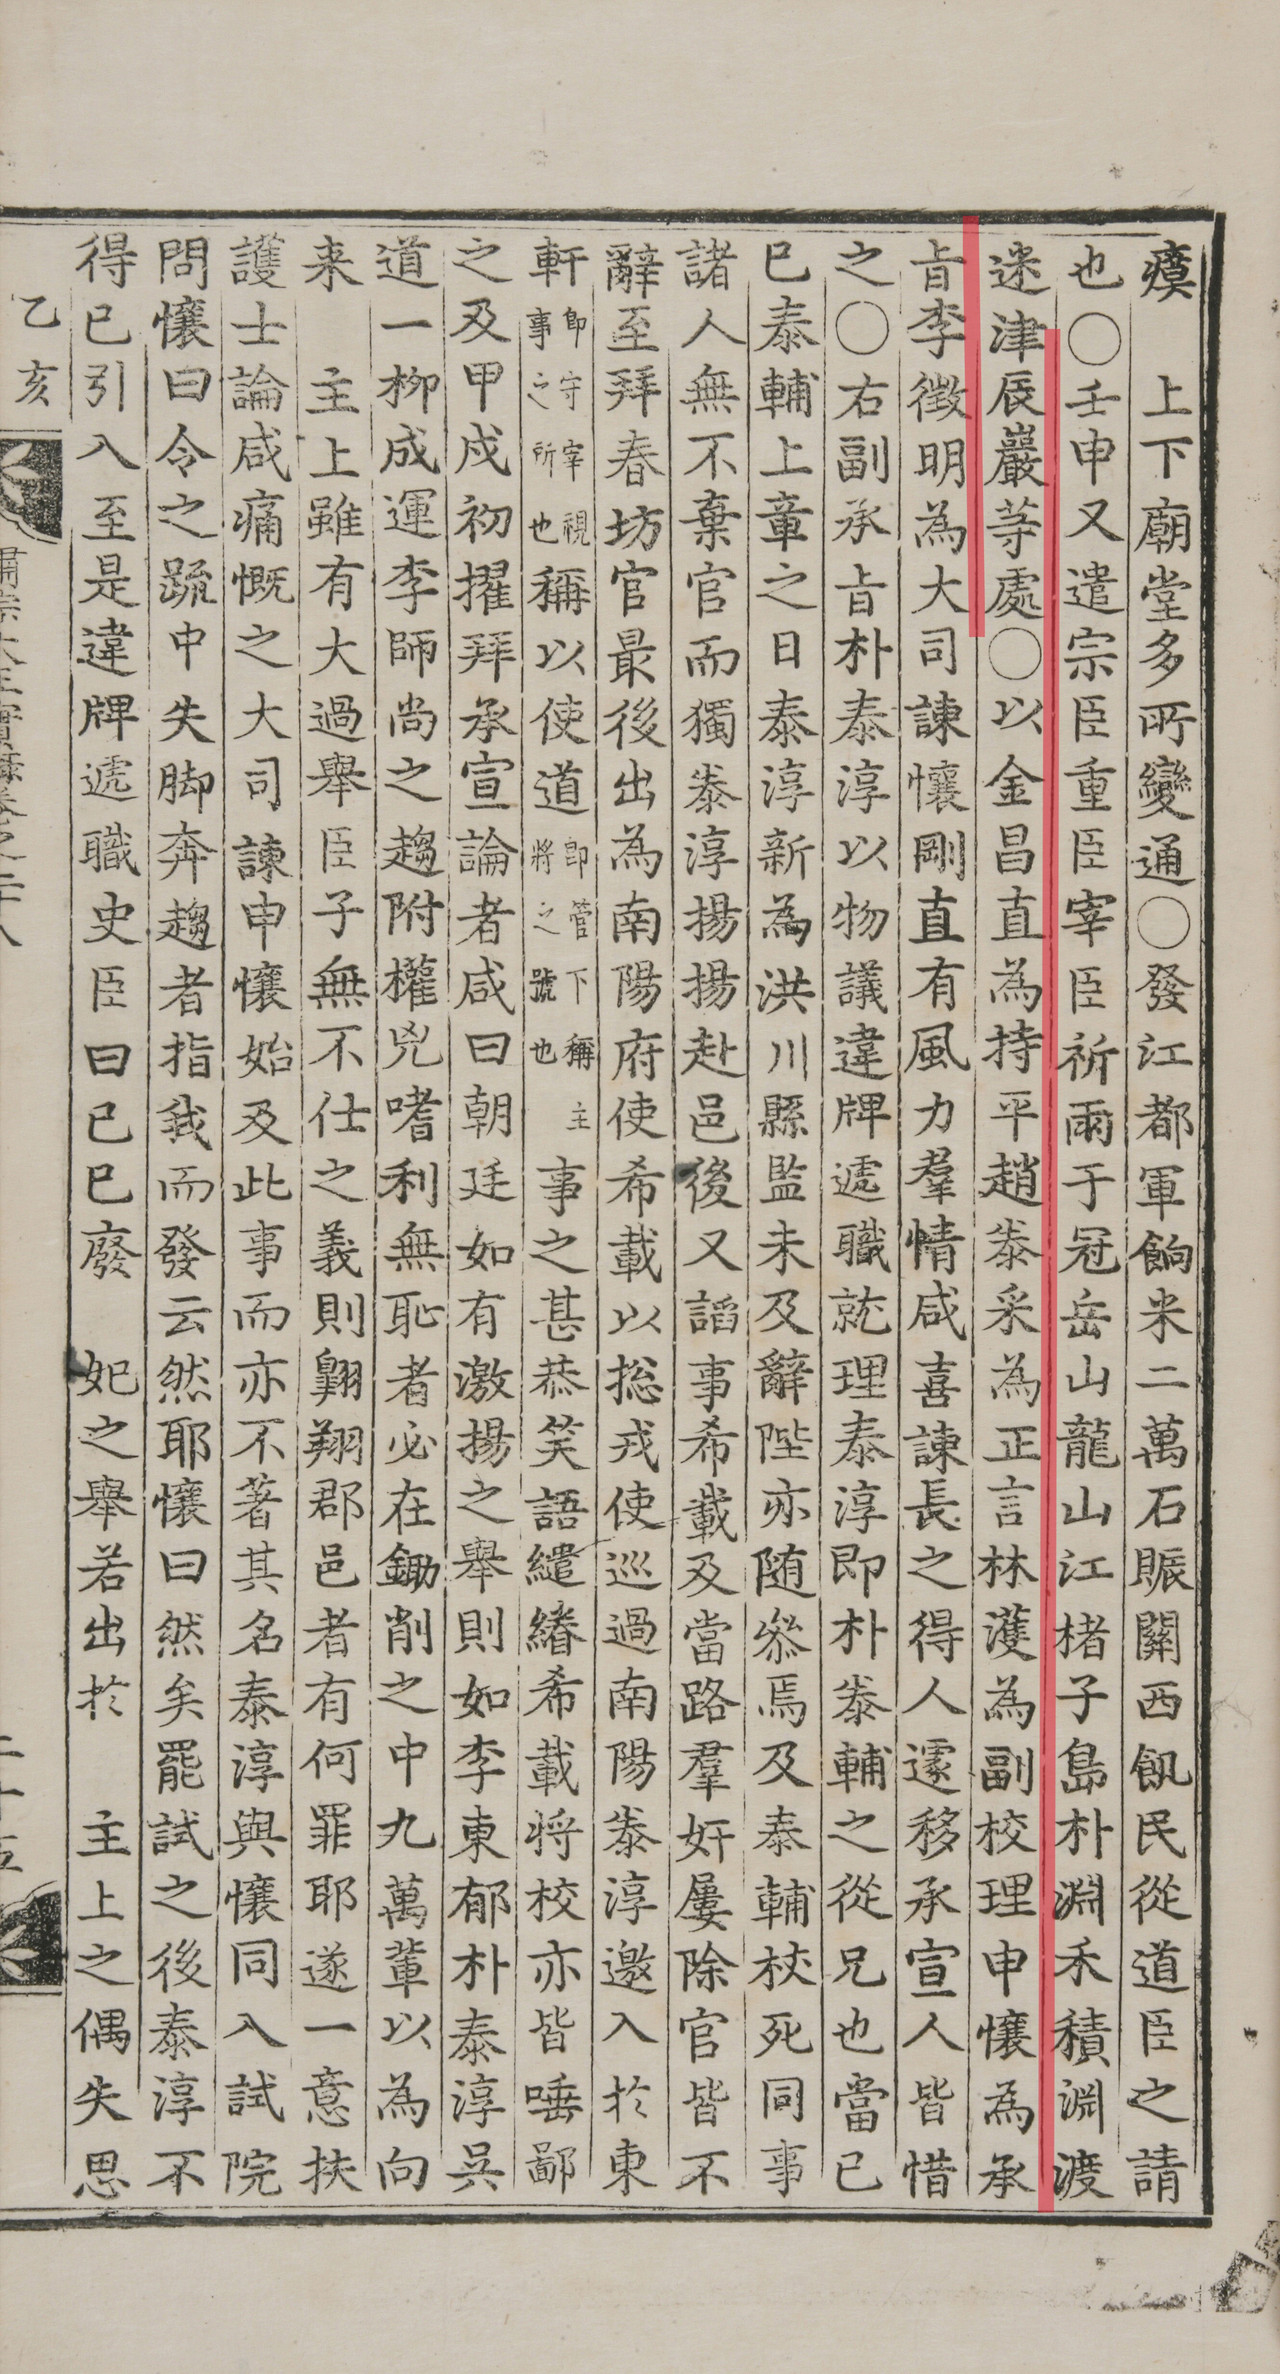 瘼 上下廟堂多所變通○發江都軍餉米二萬石賑關西飢民從道臣之請
也○壬申又遣宗臣重臣宰臣祈雨于冠岳山龍山江楮子島朴淵禾積淵渡
迷津辰巖等處○以金昌直為持平趙泰采為正言林濩為副校理申懹為承
旨李徵明為大司諫懹剛直有風力羣情咸喜諫長之得人遽移承宣人皆惜
之○右副承旨朴泰淳以物議違牌遞職就理泰淳即朴泰輔之從兄也當己
巳泰輔上章之日泰淳新為洪川縣監未及辭陛亦随叅焉及泰輔杖死同事
諸人無不棄官而獨泰淳揚揚赴邑後又謟事希載及當路羣奸屢除官皆不
辭至拜春坊官最後出為南陽府使希載以摠戎使巡過南陽泰淳邀入於東
軒即守宰視事之所也稱以使道即管下稱主將之號也 事之甚恭笑語繾綣希載將校亦皆唾鄙
之及甲戌初擢拜承宣論者咸曰朝廷如有激揚之舉則如李東郁朴泰淳吳
道一柳成運李師尚之趨附權兇嗜利無恥者必在鋤削之中九萬輩以為向
来 主上雖有大過舉臣子無不仕之義則翺翔郡邑者有何罪耶遂一意扶
護士論咸痛慨之大司諫申懹始及此事而亦不著其名泰淳與懹同入試院
問懹曰令之䟽中失脚奔趨者指我而發云然耶懹曰然矣罷試之後泰淳不
得已引入至是違牌遞職史臣曰己巳廢 妃之舉若出於 主上之偶失思
乙亥
肅宗大王實錄卷之二十八
二十五